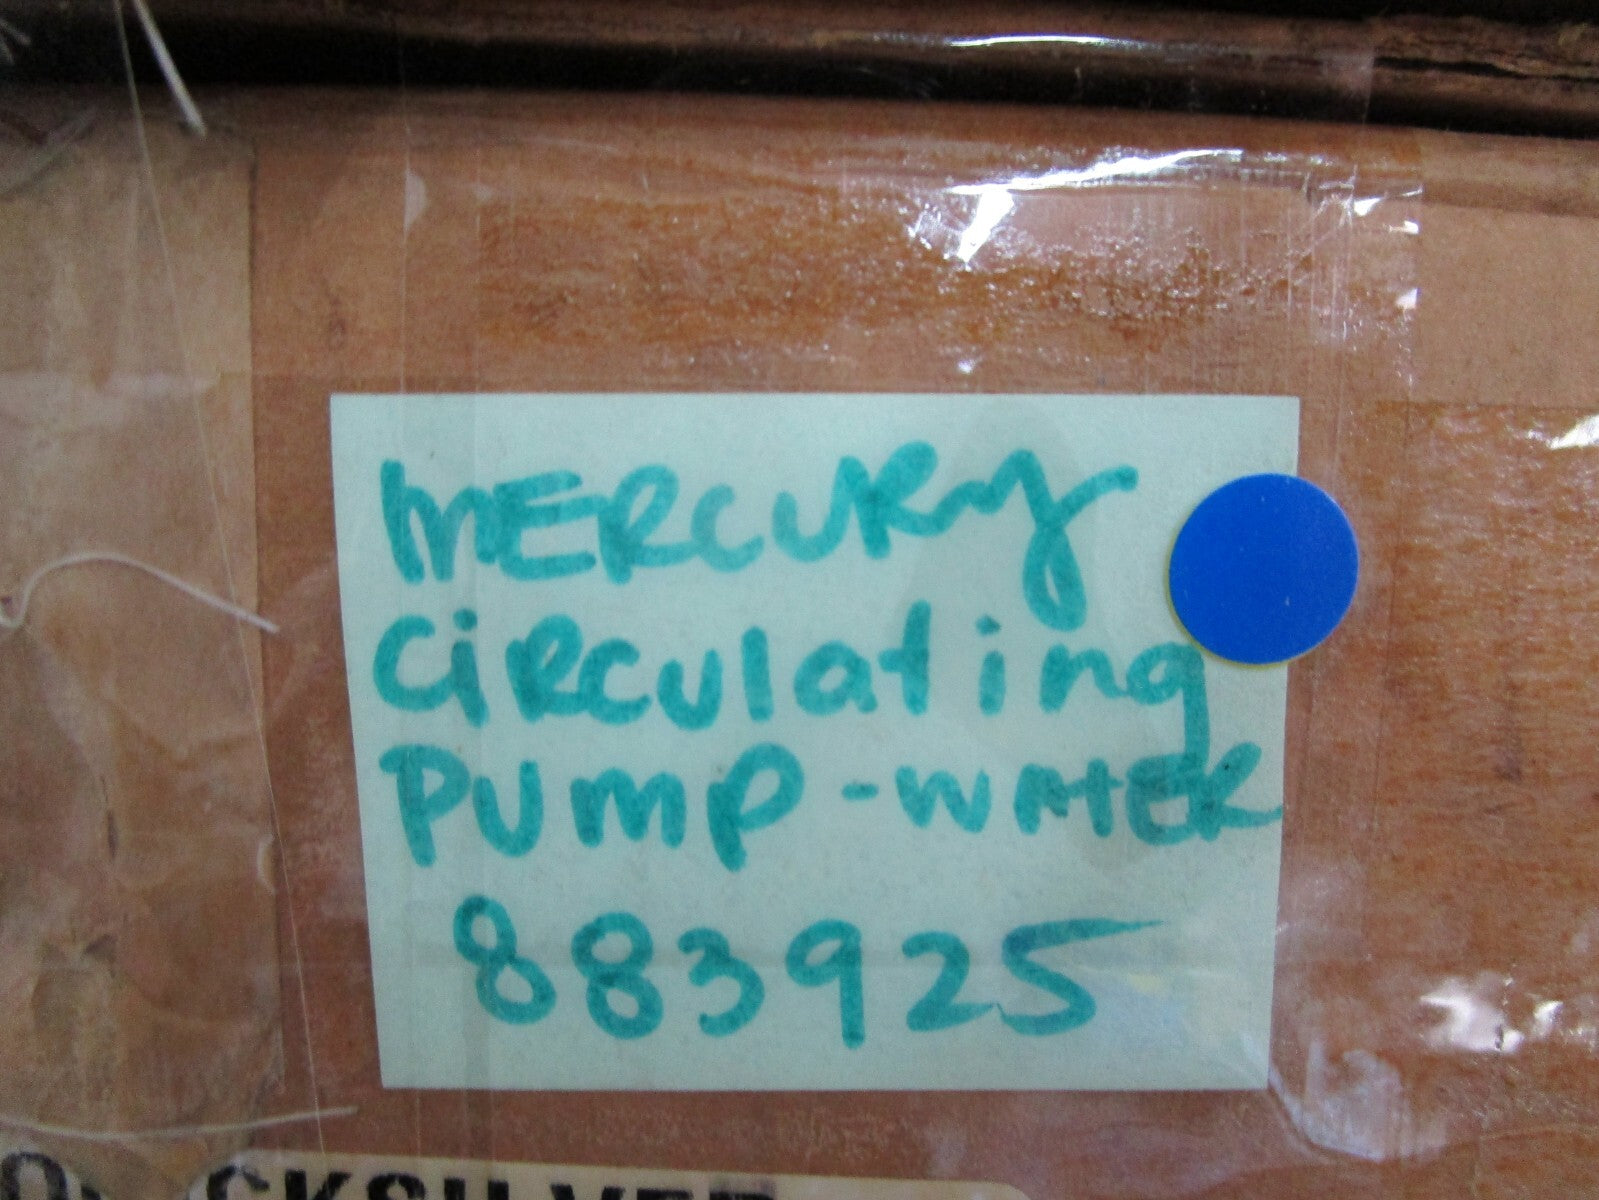 MERCURY
Circulating
PUMP-WATER
883925
QUICKSILVER